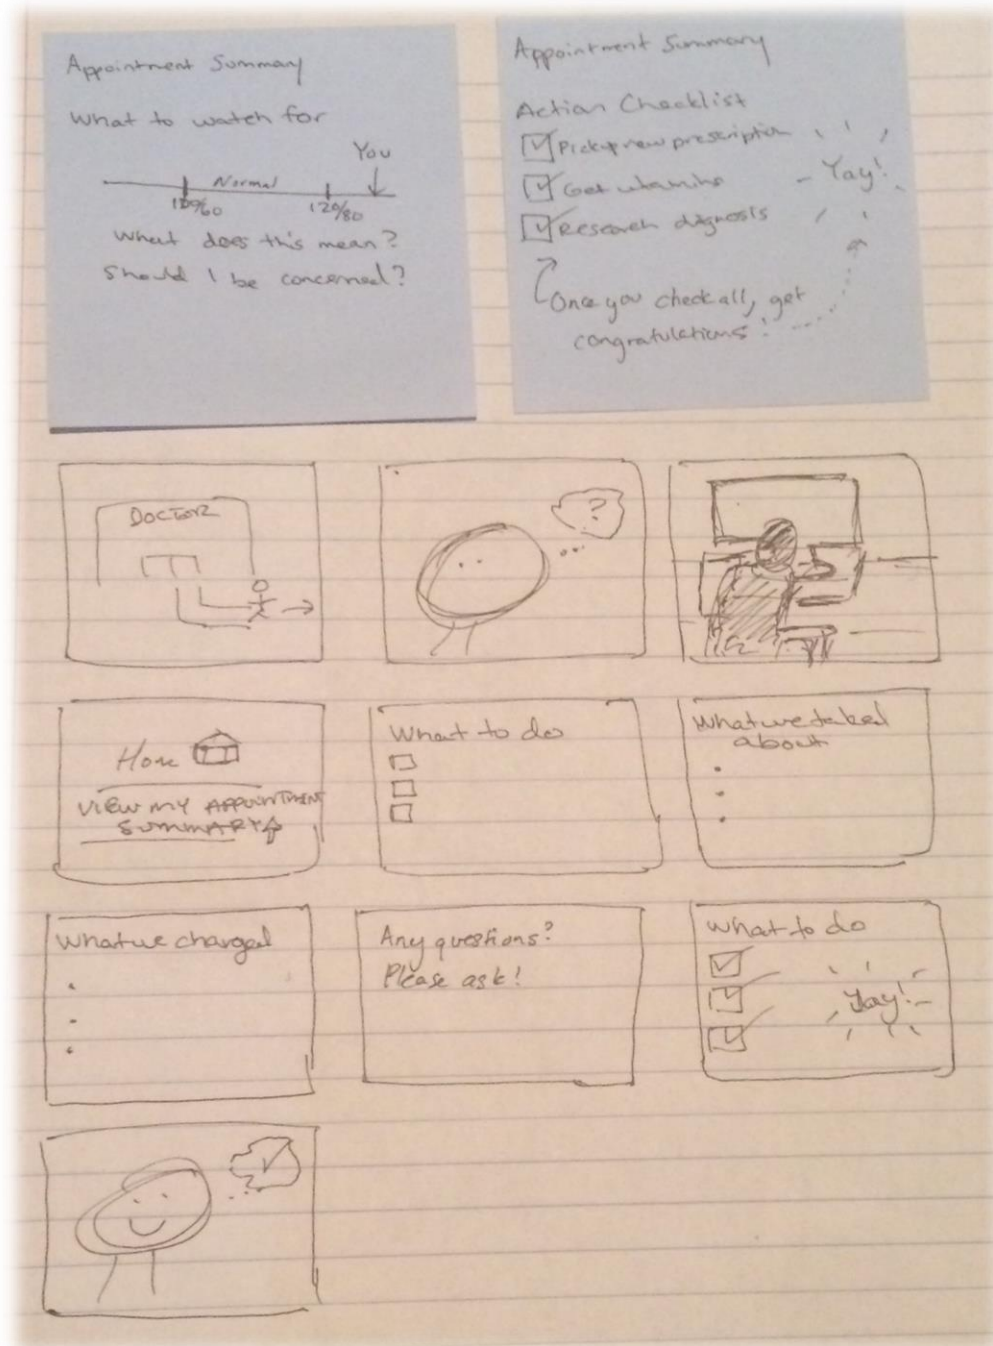 Appointment Summary
What to watch for
You
Normal
120/80
What does this mean?
Should I be concerned?
Appointment Summary
Action Checklist
Pick up new prescription
Yay!
Get vitamins
Research diagnosis
Once you check all, get
congratulations!
DOCTOR
?
Home
VIEW MY APPOINTMENT
SUMMARY
What to do
What we talked
about
What we charged
Any questions?
Please ask!
What to do
Yay!